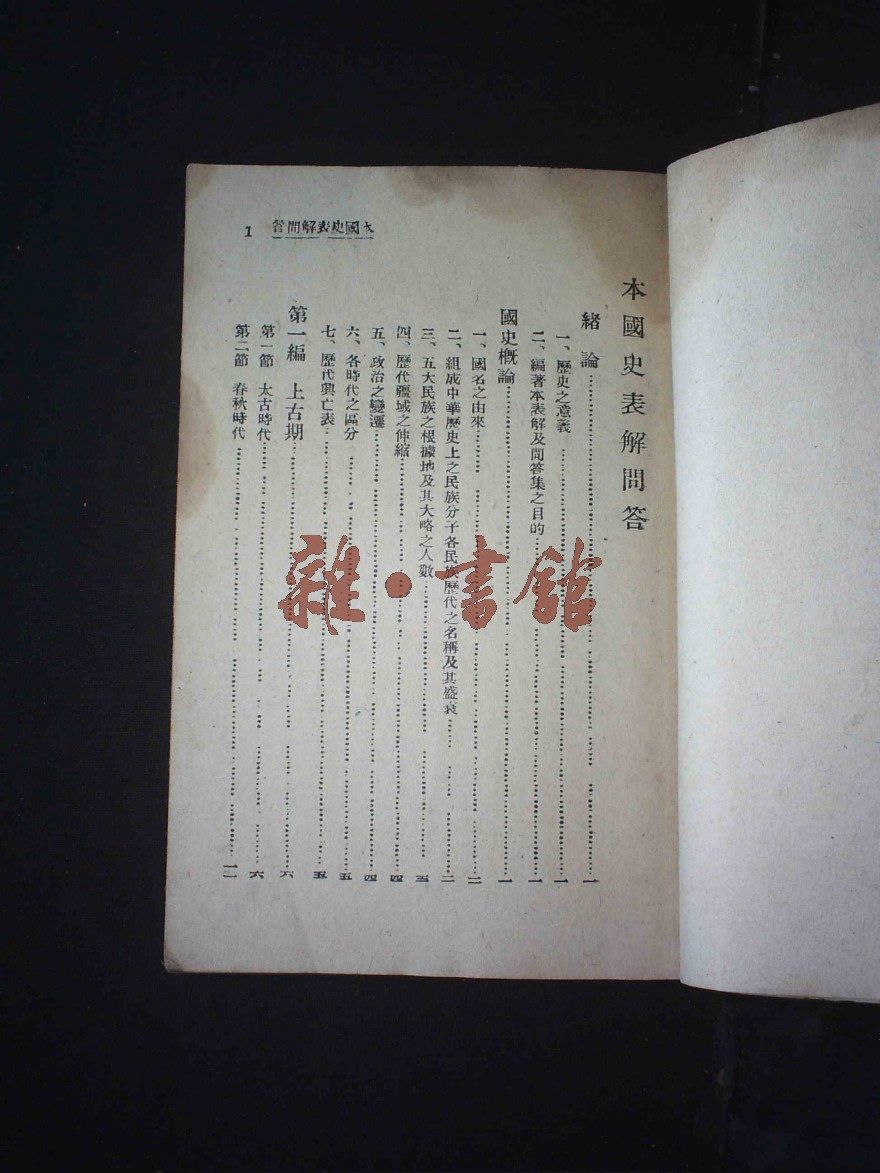 本國史表解問答
緒論……一
一、歷史之意義……一
二、編著本表解及問答集之目的……一
國史概論……一
一、國名之由來……二
二、組成中華歷史上之民族分子各民族歷代之名稱及其盛衰……二
三、五大民族之根據地及其大略之人數……三
四、歷代疆域之伸縮……四
五、政治之變遷……四
六、各時代之區分……五
七、歷代興亡表……五
第一編 上古期……六
第一節 太古時代……六
第二節 春秋時代……一一
本國史表解問答 1
雜·書館